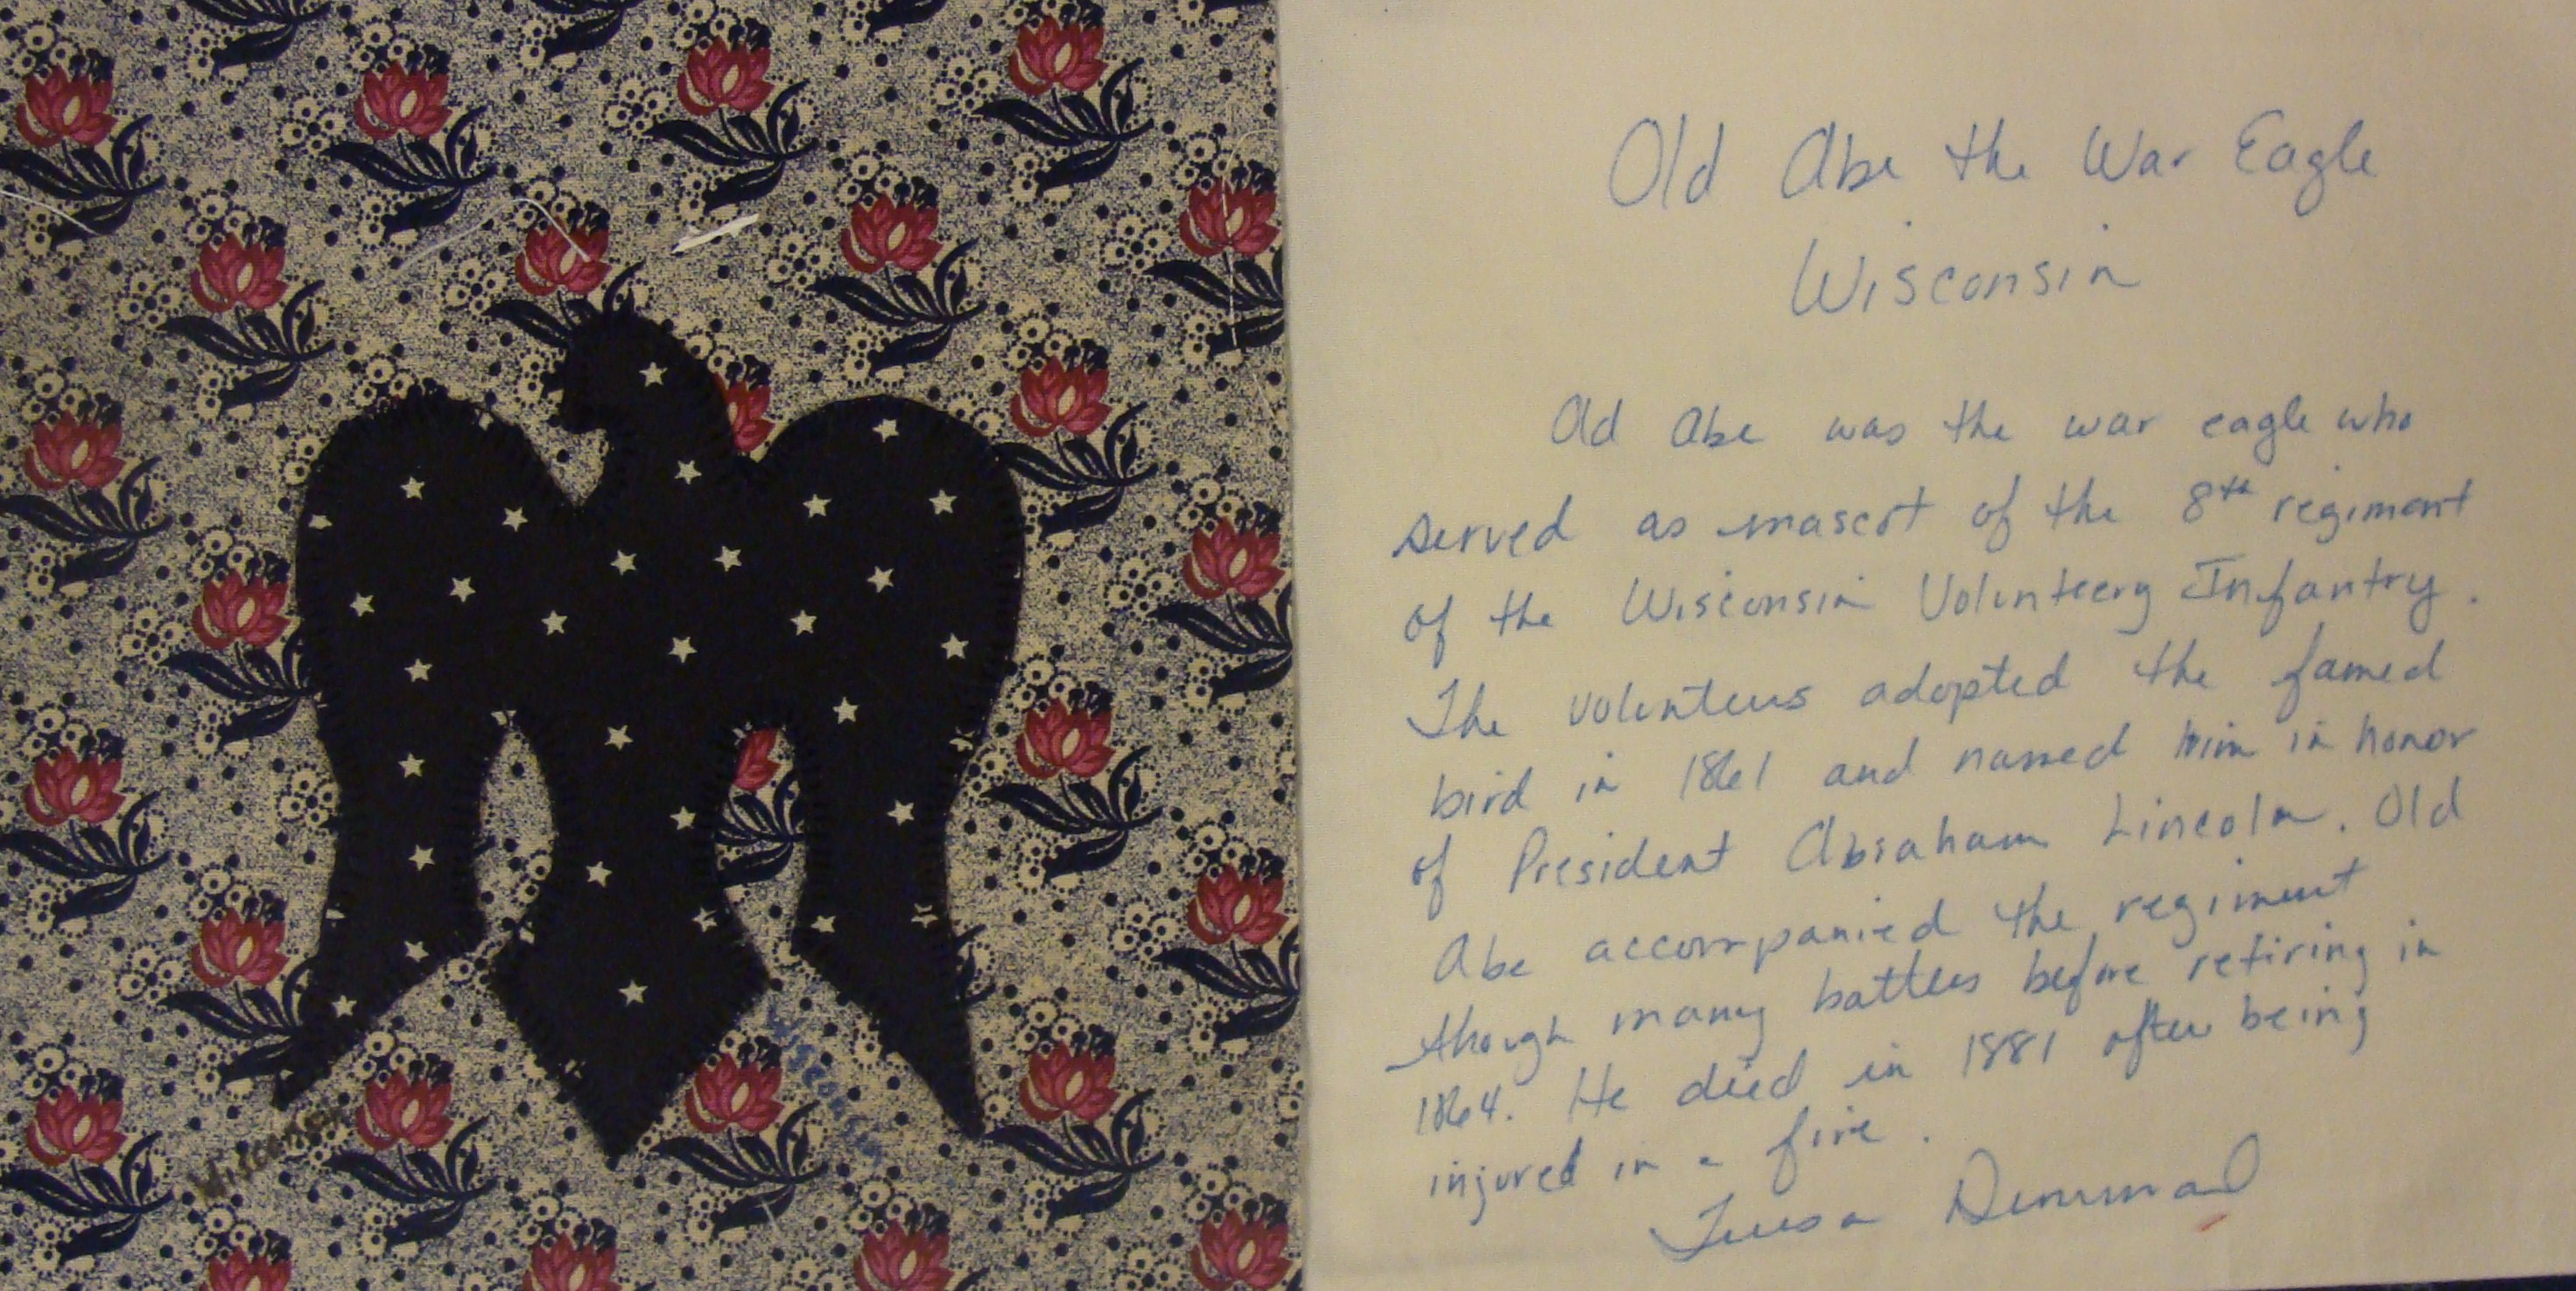 Old Abe the War Eagle
Wisconsin
Old Abe was the war eagle who
served as mascot of the 8th regiment
of the Wisconsin Volunteery Infantry.
The volunteers adopted the famed
bird in 1861 and named him in honor
of President Abraham Lincoln. Old
Abe accompanied the regiment
though many battles before retiring in
1864. He died in 1881 after being
injured in a fire.
Wisconsin
Wisconsin